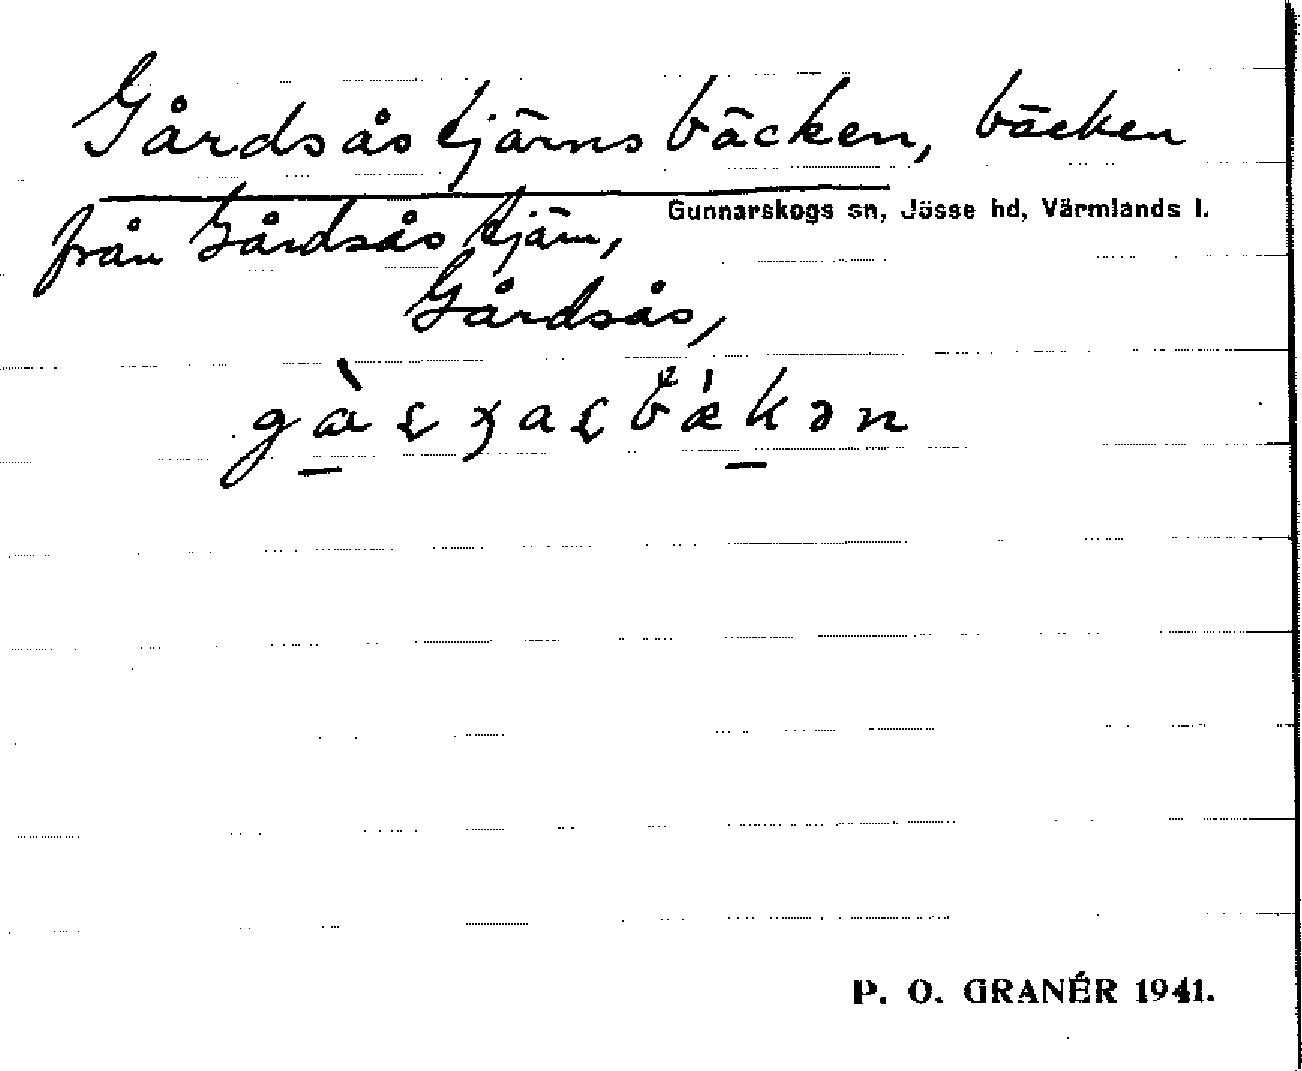 Gårdsåstjärnsbäcken, bäcken
Gunnarskogs sn, Jösse hd, Värmlands l.
från Gårdsåstjärn,
Gårdsås,
P. O. GRANÉR 1941.